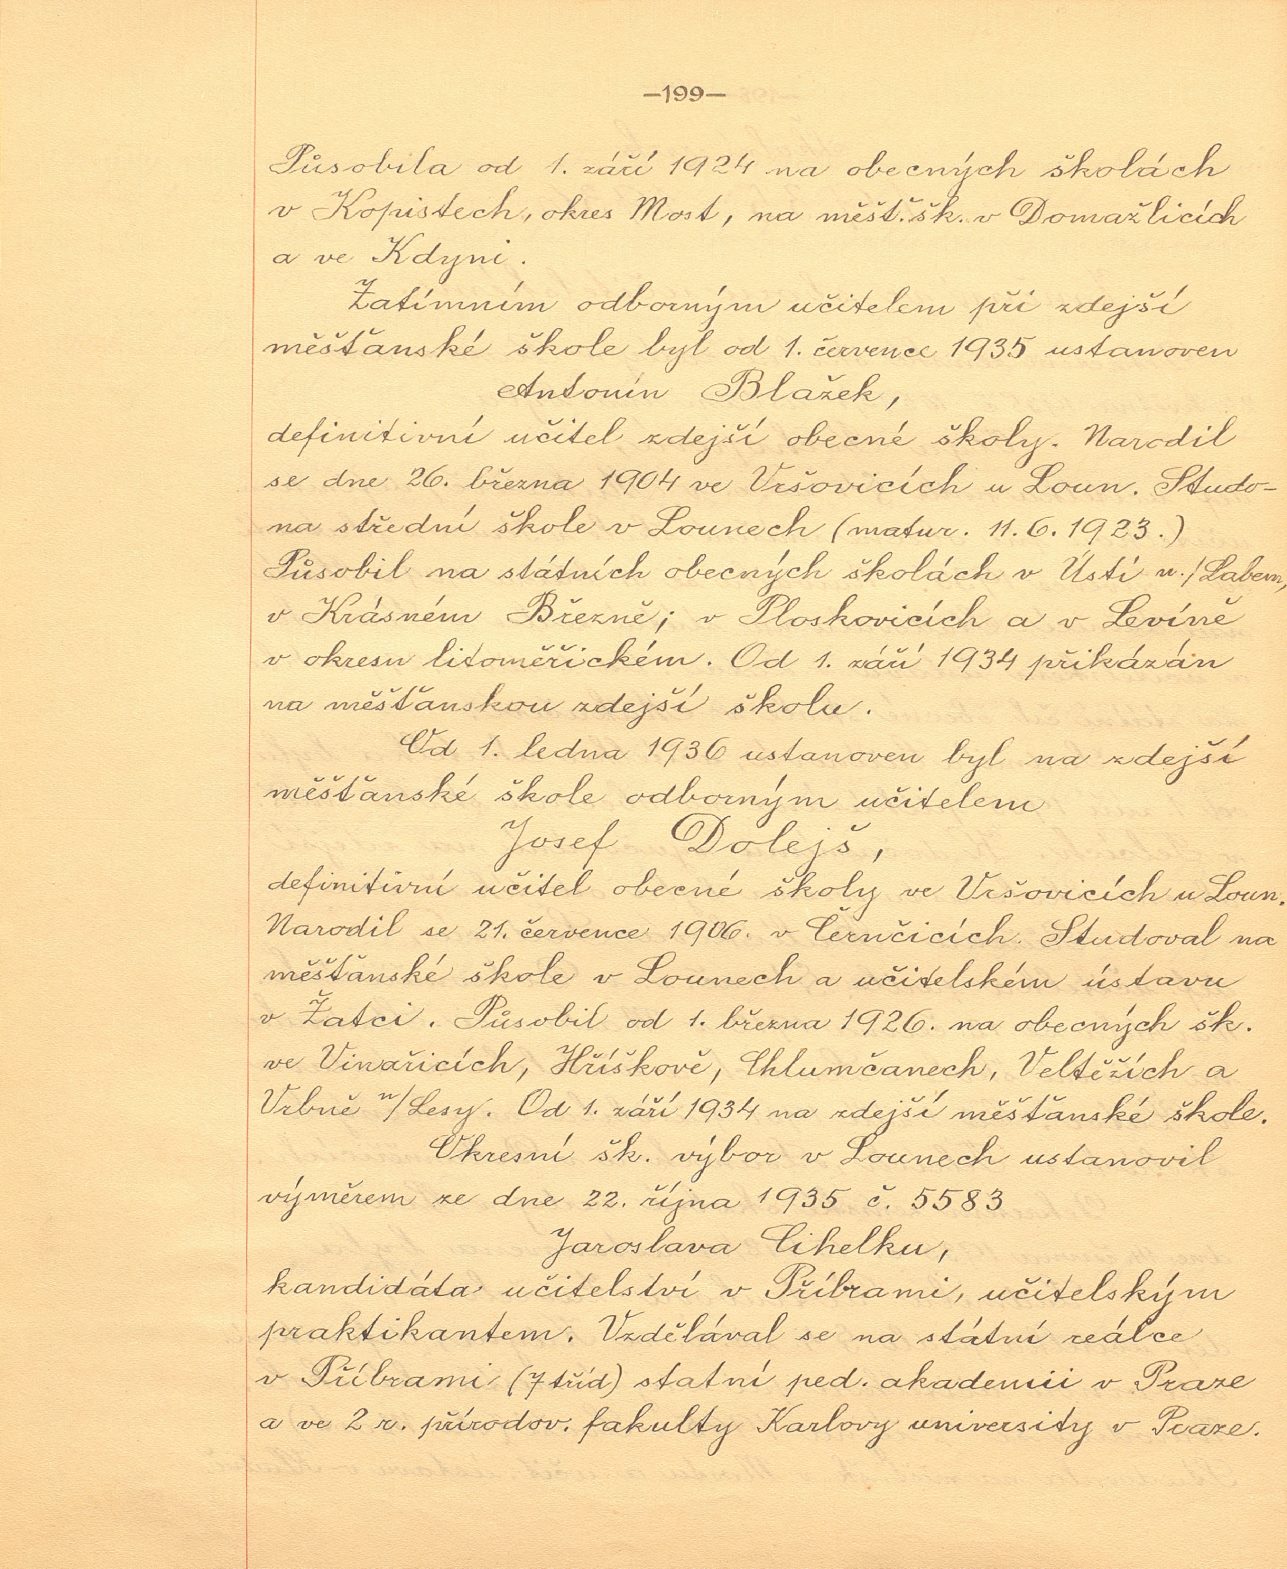 —199—
Působila od 1. září 1924 na obecných školách
v Kopistech, okres Most, na měšť. šk. v Domažlicích
a ve Kdyni.
Zatímním odborným učitelem při zdejší
měšťanské škole byl od 1. července 1935 ustanoven
Antonín Blažek,
definitivní učitel zdejší obecné školy. Narodil
se dne 26. března 1904 ve Vršovicích u Loun. Studo-
na střední škole v Lounech (matur. 11. 6. 1923.)
Působil na státních obecných školách v Ústí n./Labem,
v Krásném Březně; v Ploskovicích a v Levíně
v okresu litoměřickém. Od 1. září 1934 přikázán
na měšťanskou zdejší školu.
Od 1. ledna 1936 ustanoven byl na zdejší
měšťanské škole odborným učitelem
Josef Dolejš,
definitivní učitel obecné školy ve Vršovicích u Loun.
Narodil se 21. července 1906. v Černčicích. Studoval na
měšťanské škole v Lounech a učitelském ústavu
v Žatci. Působil od 1. března 1926. na obecných šk.
ve Vinařicích, Hříškově, Chlumčanech, Veltěžích a
Vrbně n/Lesy. Od 1. září 1934 na zdejší měšťanské škole.
Okresní šk. výbor v Lounech ustanovil
výměrem ze dne 22. října 1935 č. 5583
Jaroslava Cihelku,
kandidáta učitelství v Příbrami, učitelským
praktikantem. Vzdělával se na státní reálce
v Příbrami (7 tříd) statní ped. akademii v Praze
a ve 2 r. přírodov. fakulty Karlovy university v Praze.